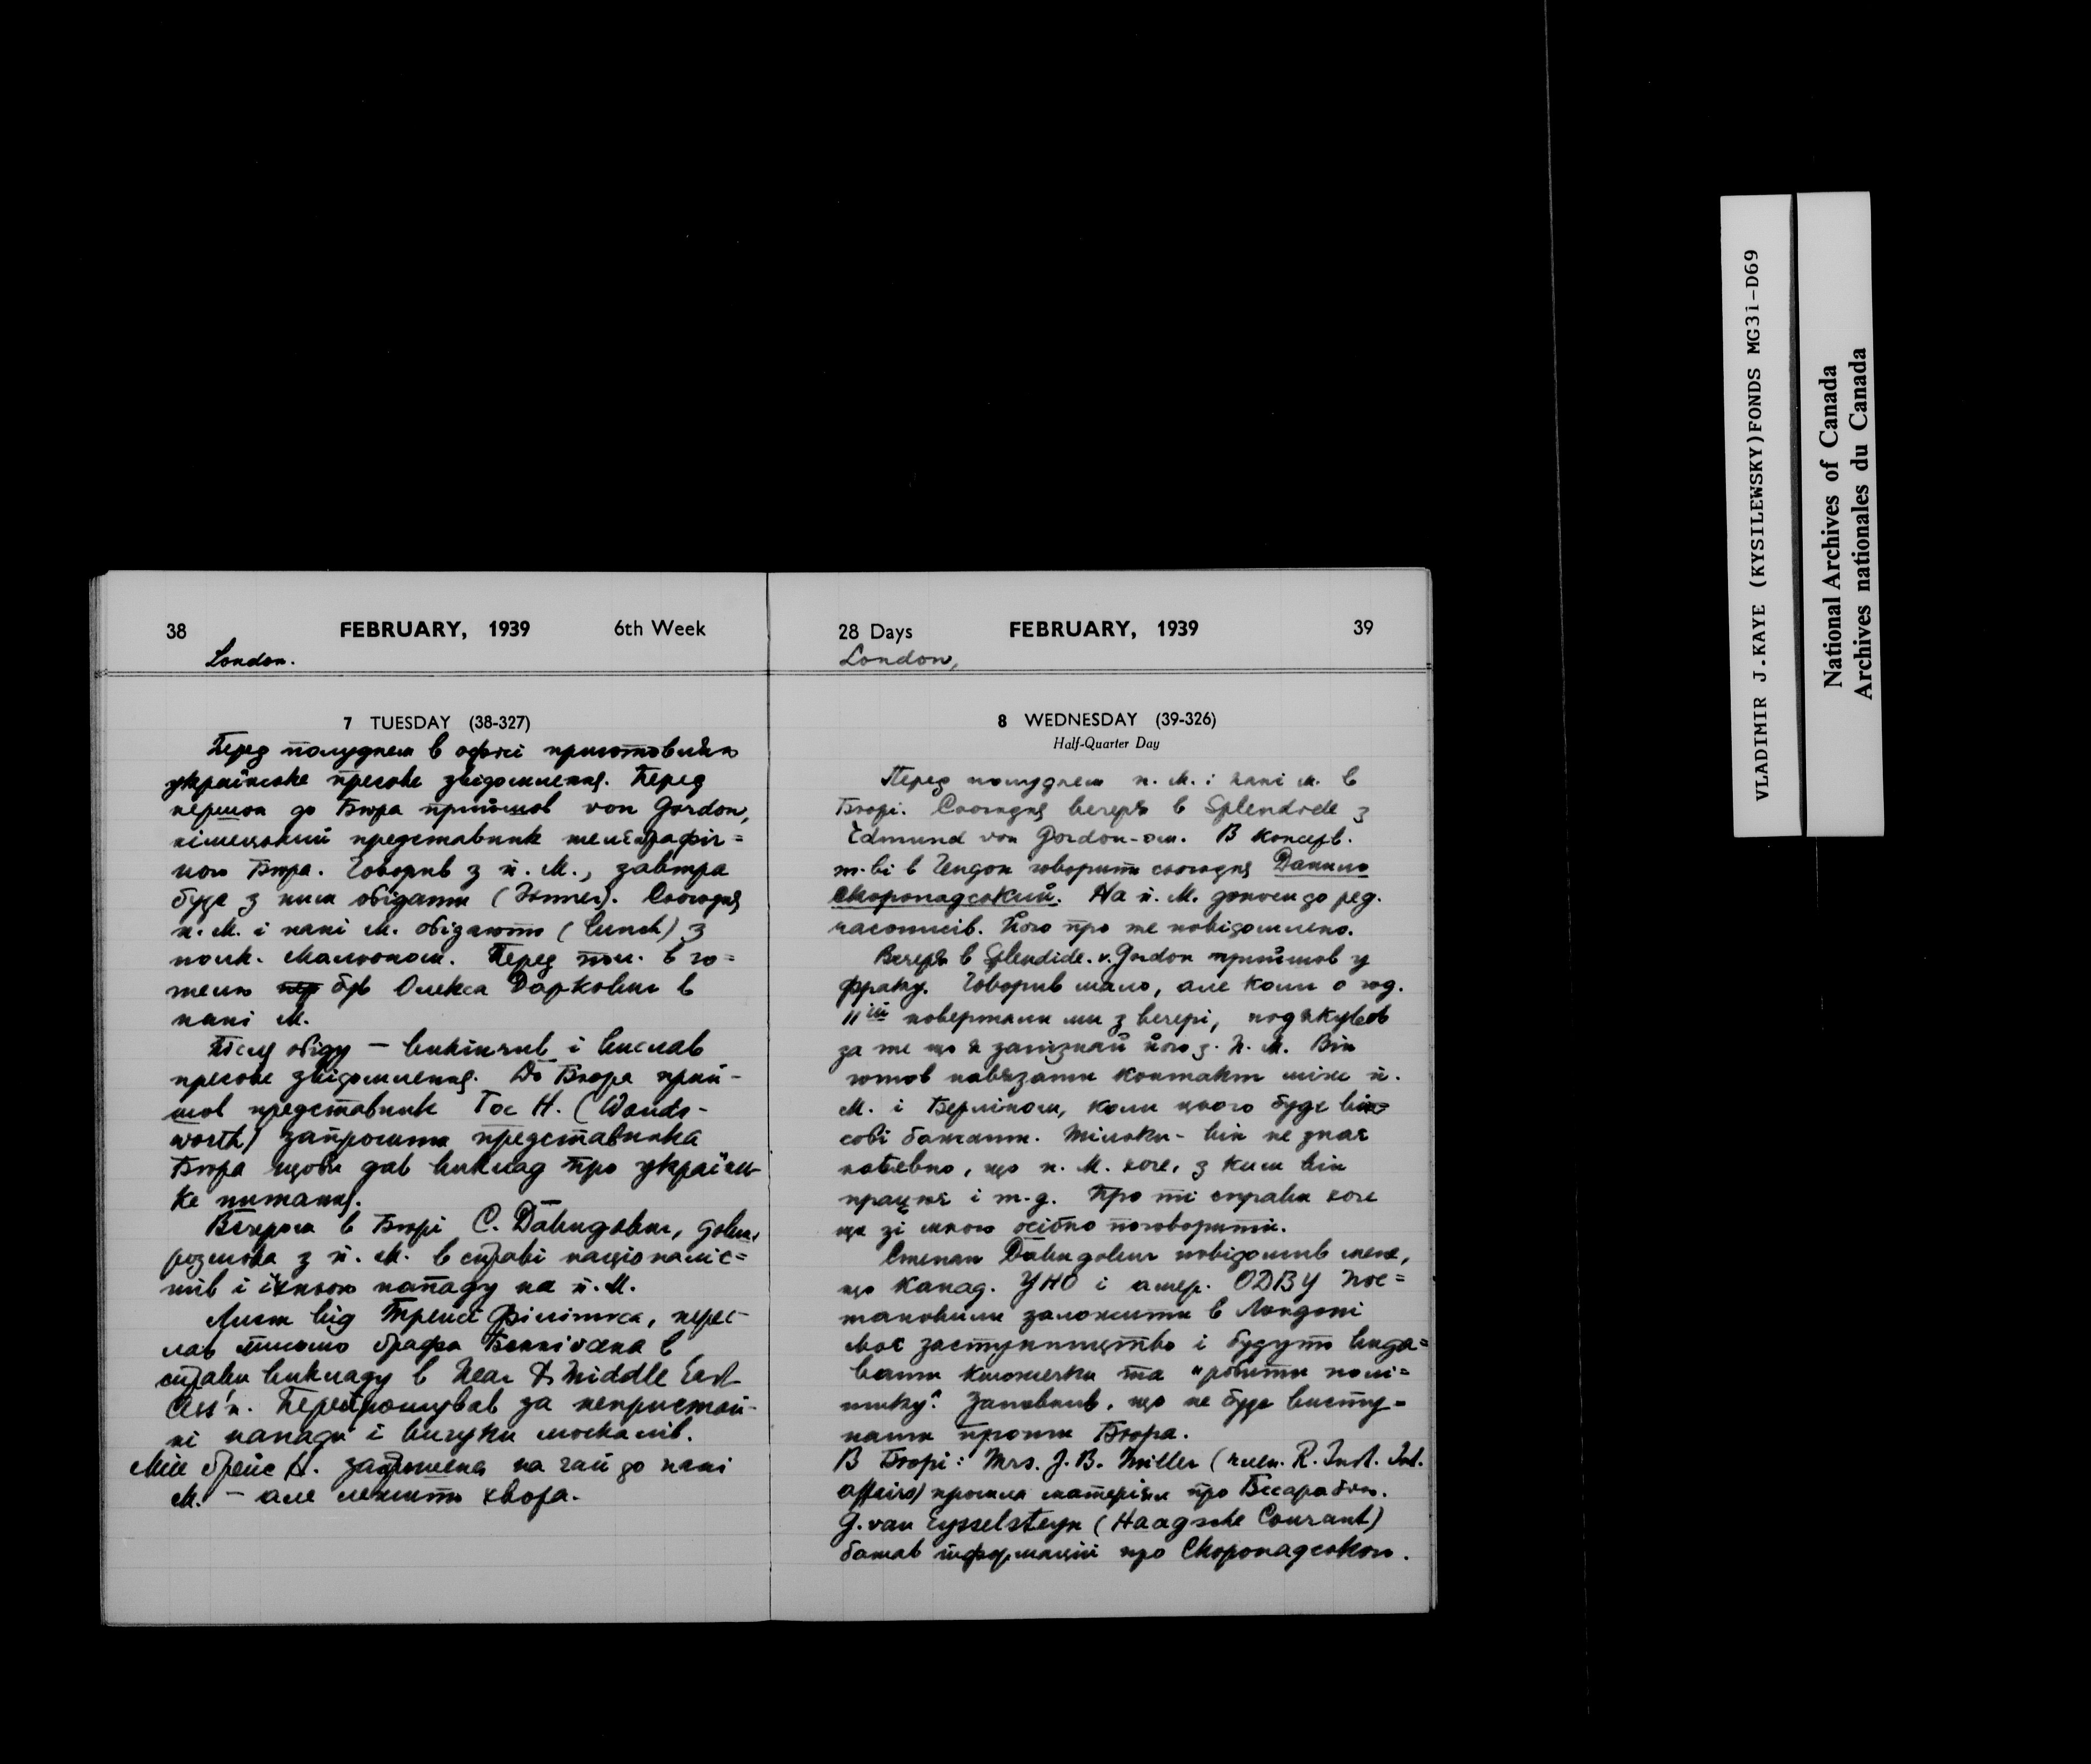 38 FEBRUARY, 1939 6th Week
London.
7 TUESDAY (38-327)
Перед полуднем в офісі приготовив
українське пресове звідомлення. Перед
першою до Бюра прийшов von Gordon,
німецький представник телєграфіч=
ного Бюра. Говорив з п. М., завтра
буде з ним обідати (Dinner). Сьогодня
п. М. і пані М. обідають (Lunch) з
полк. Малоном. Перед пол. в го=
телю був Олекса Даркович в
пані М.
Після обіду — викінчив і вислав
пресове звідомлення. До Бюра прий-
шов представник Toc H. (Wands-
worth) запросити представника
Бюра щоби дав виклад про україн-
ке питання.
Вечером в Бюрі С. Давидович, довш.
розмова з п. М. в справі націоналіс=
тів і їхнього нападу на п. М.
Лист від Трейсі Філіпса, перес-
лав письмо графа Беннісена в
справі викладу в Near & Middle East
Ass'n. Перепрошував за непристой-
ні напади і вигуки москалів.
Міс Брейс А. запрошена на чай до пані
М. — але лежить хвора.
28 Days FEBRUARY, 1939 39
London,
8 WEDNESDAY (39-326)
Half-Quarter Day
Перед полуднем п. М. і пані М. в
Бюрі. Сьогодня вечеря в Splendide з
Edmund von Gordon-ом. В консерв.
т-ві в Гендон говорить сьогодня Данило
Скоропадський. На п. М. доноси до ред.
часописів. Його про те повідомлено.
Вечеря в Splendide. v. Gordon прийшов у
фраку. Говорив мало, але коли о год.
11ій повертали ми з вечері, подякував
за те що я запізнай його з. П. М. Він
готов навязати контакт між п.
М. і Берліном, коли цього буде він
собі бажати. Тільки - він не знає
напевно, що п. М. хоче, з ким він
працює і т.д. Про ті справи хоче
ще зі мною осібно поговорити.
Степан Давидович повідомив мене,
що канад. УНО і амер. ОДВУ пос=
тановили заложити в Лондоні
своє заступництво і будуть вида=
вати книжечки та "робити полі=
тику". Запевнив, що не буде висту=
пати проти Бюра.
В Бюрі: Mrs. J. B. Miller (член. R. Inst. Int.
Affairs) просила матеріял про Бесарабію.
G. van Eysselsteyn (Haagsche Courant)
бажав інформацій про Скоропадського.
VLADIMIR J.KAYE (KYSILEWSKY)FONDS MG31-D69
National Archives of Canada
Archives nationales du Canada